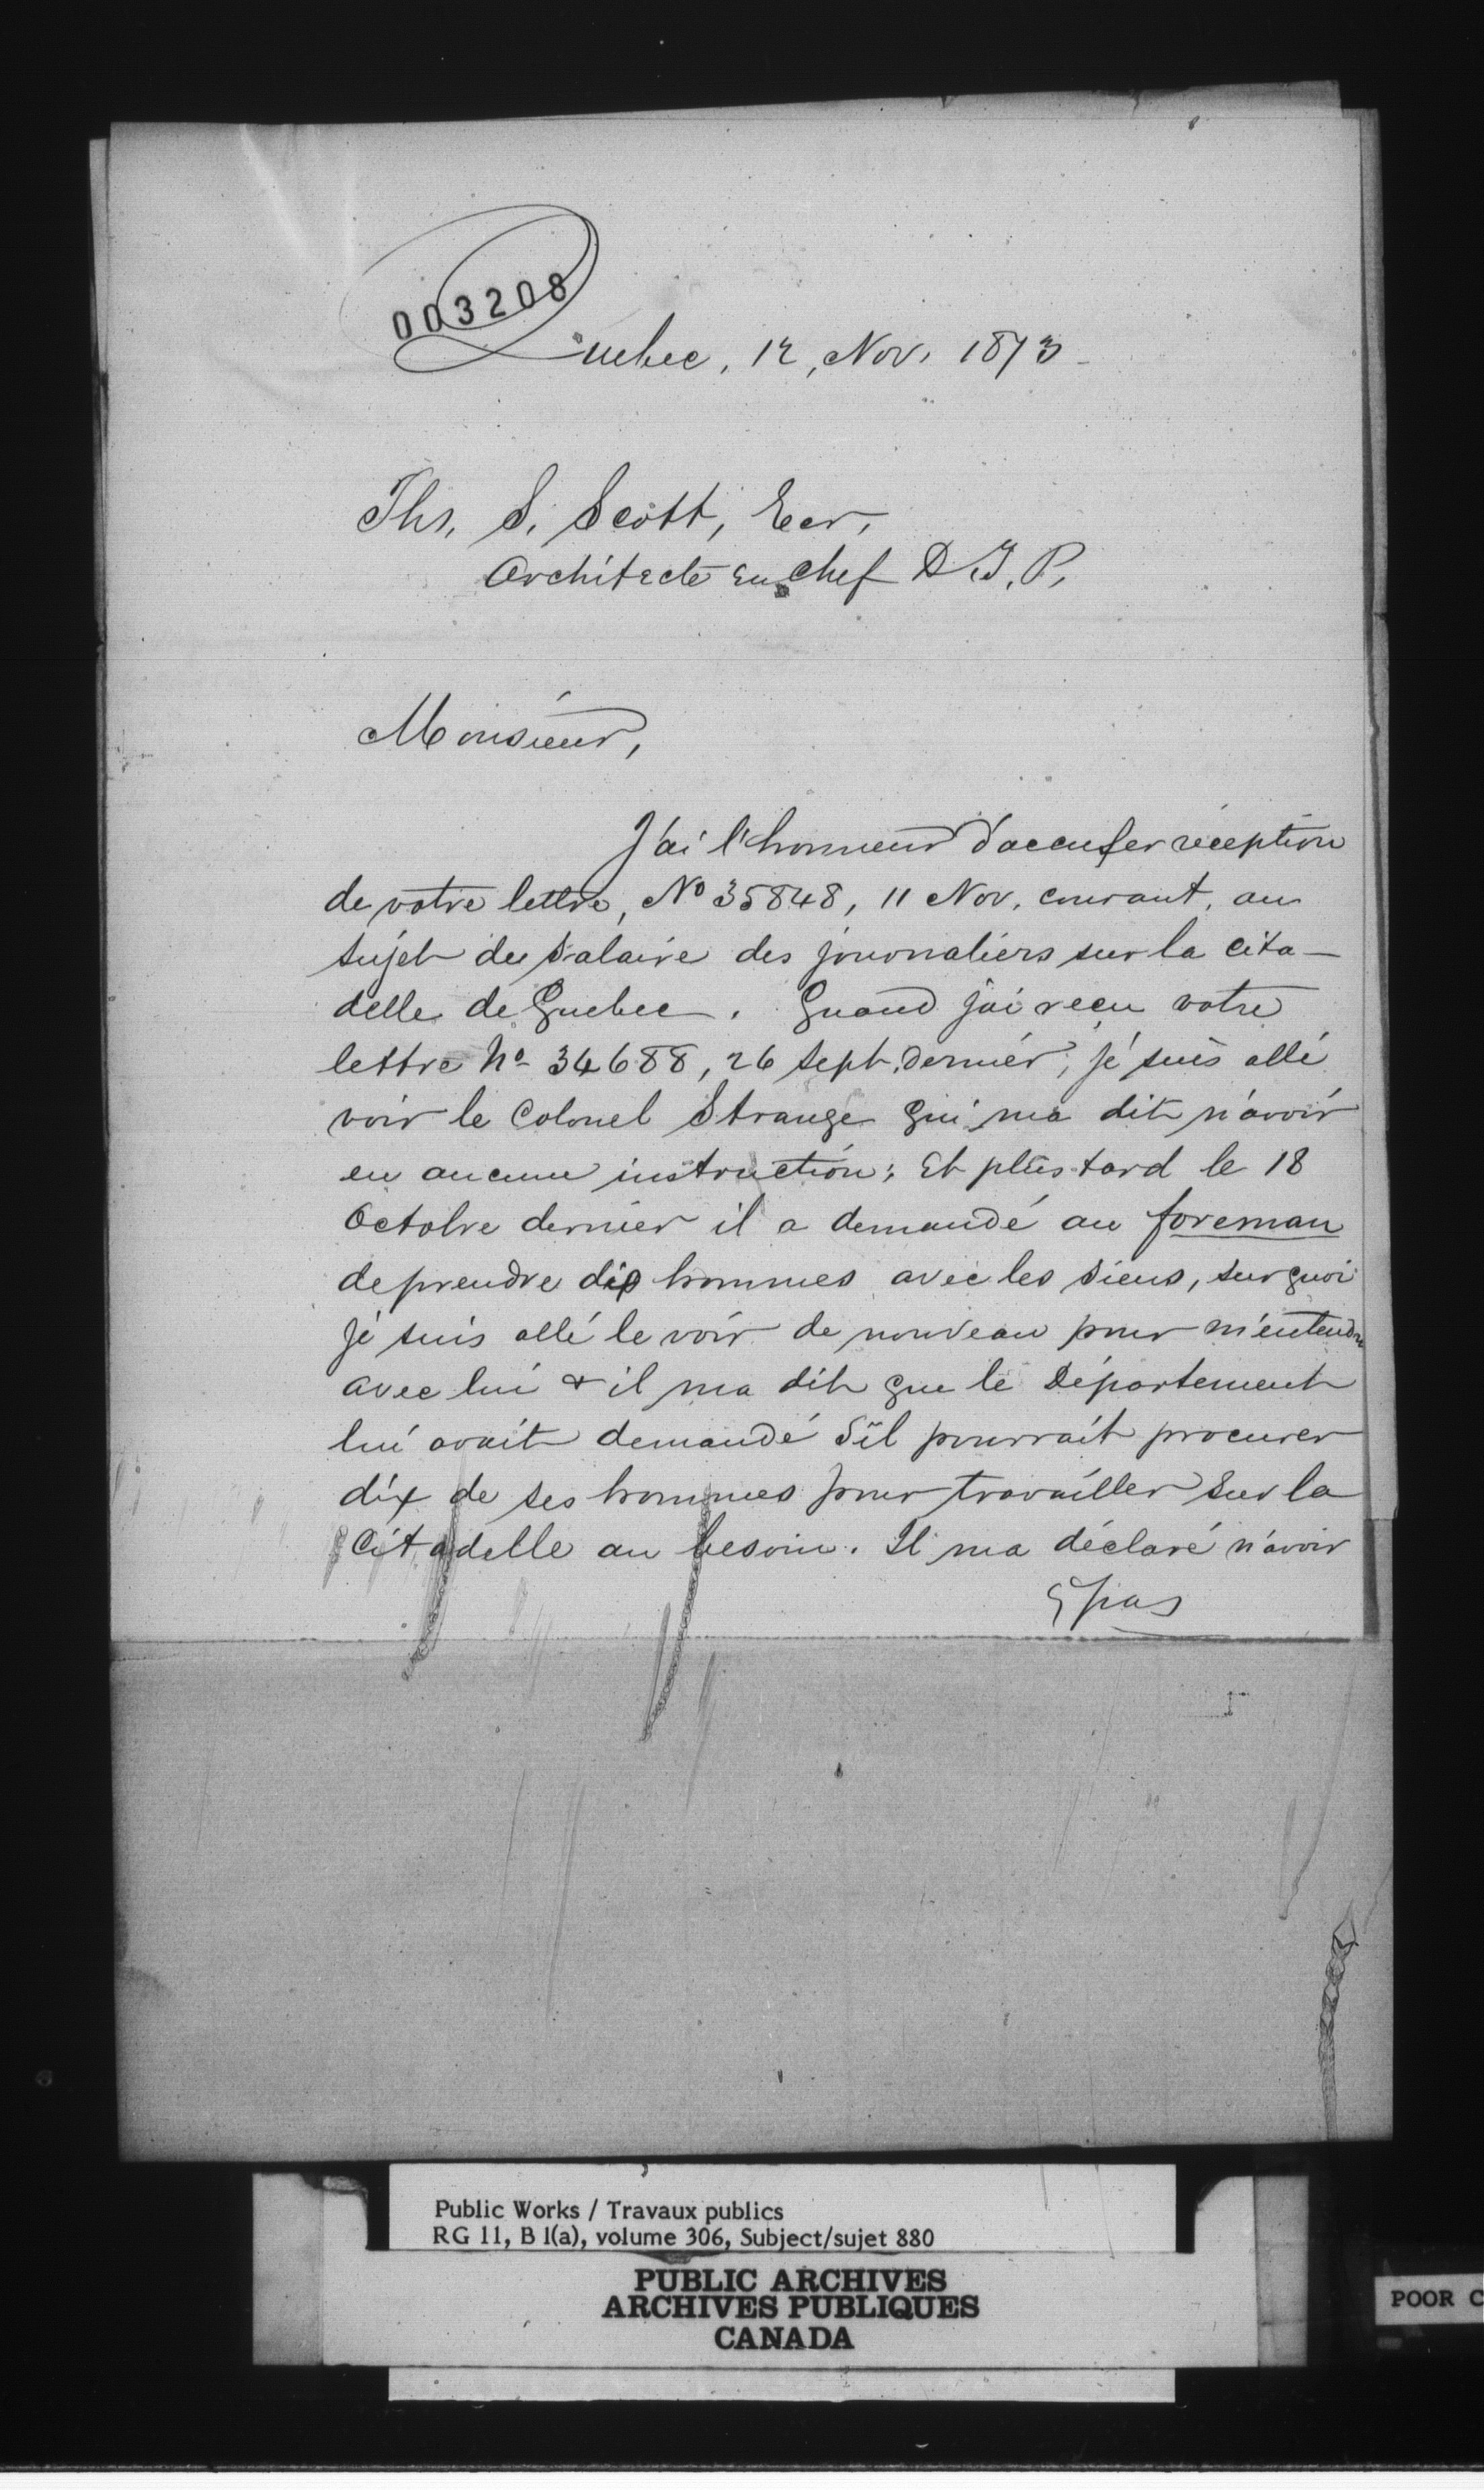 003208
Quebec, 12, Nov. 1873
Ths. S. Scott, Ecr,
Architecte en chef D.T.P.
Monsieur,
J'ai l'honneur d'accuser réception
de votre lettre, No 35848, 11 Nov. courant, au
sujet du salaire des journaliers sur la cita-
delle de Quebec. Quand j'ai reçu votre
lettre No 34688, 26 Sept. dernier, je suis allé
voir le Colonel Strange qui m'a dit n'avoir
eu aucune instruction; Et plus tard le 18
Octobre dernier il a demandé au foreman
de prendre dix hommes avec les siens, sur quoi
je suis allé le voir de nouveau pour m'entendre
avec lui & il m'a dit que le Département
lui avait demandé s'il pourrait procurer
dix de ses hommes pour travailler sur la
Citadelle au besoin. Il m'a déclaré n'avoir
pas
Public Works / Travaux publics
RG 11, B 1(a), volume 306, Subject/sujet 880
PUBLIC ARCHIVES
ARCHIVES PUBLIQUES
CANADA
POOR C